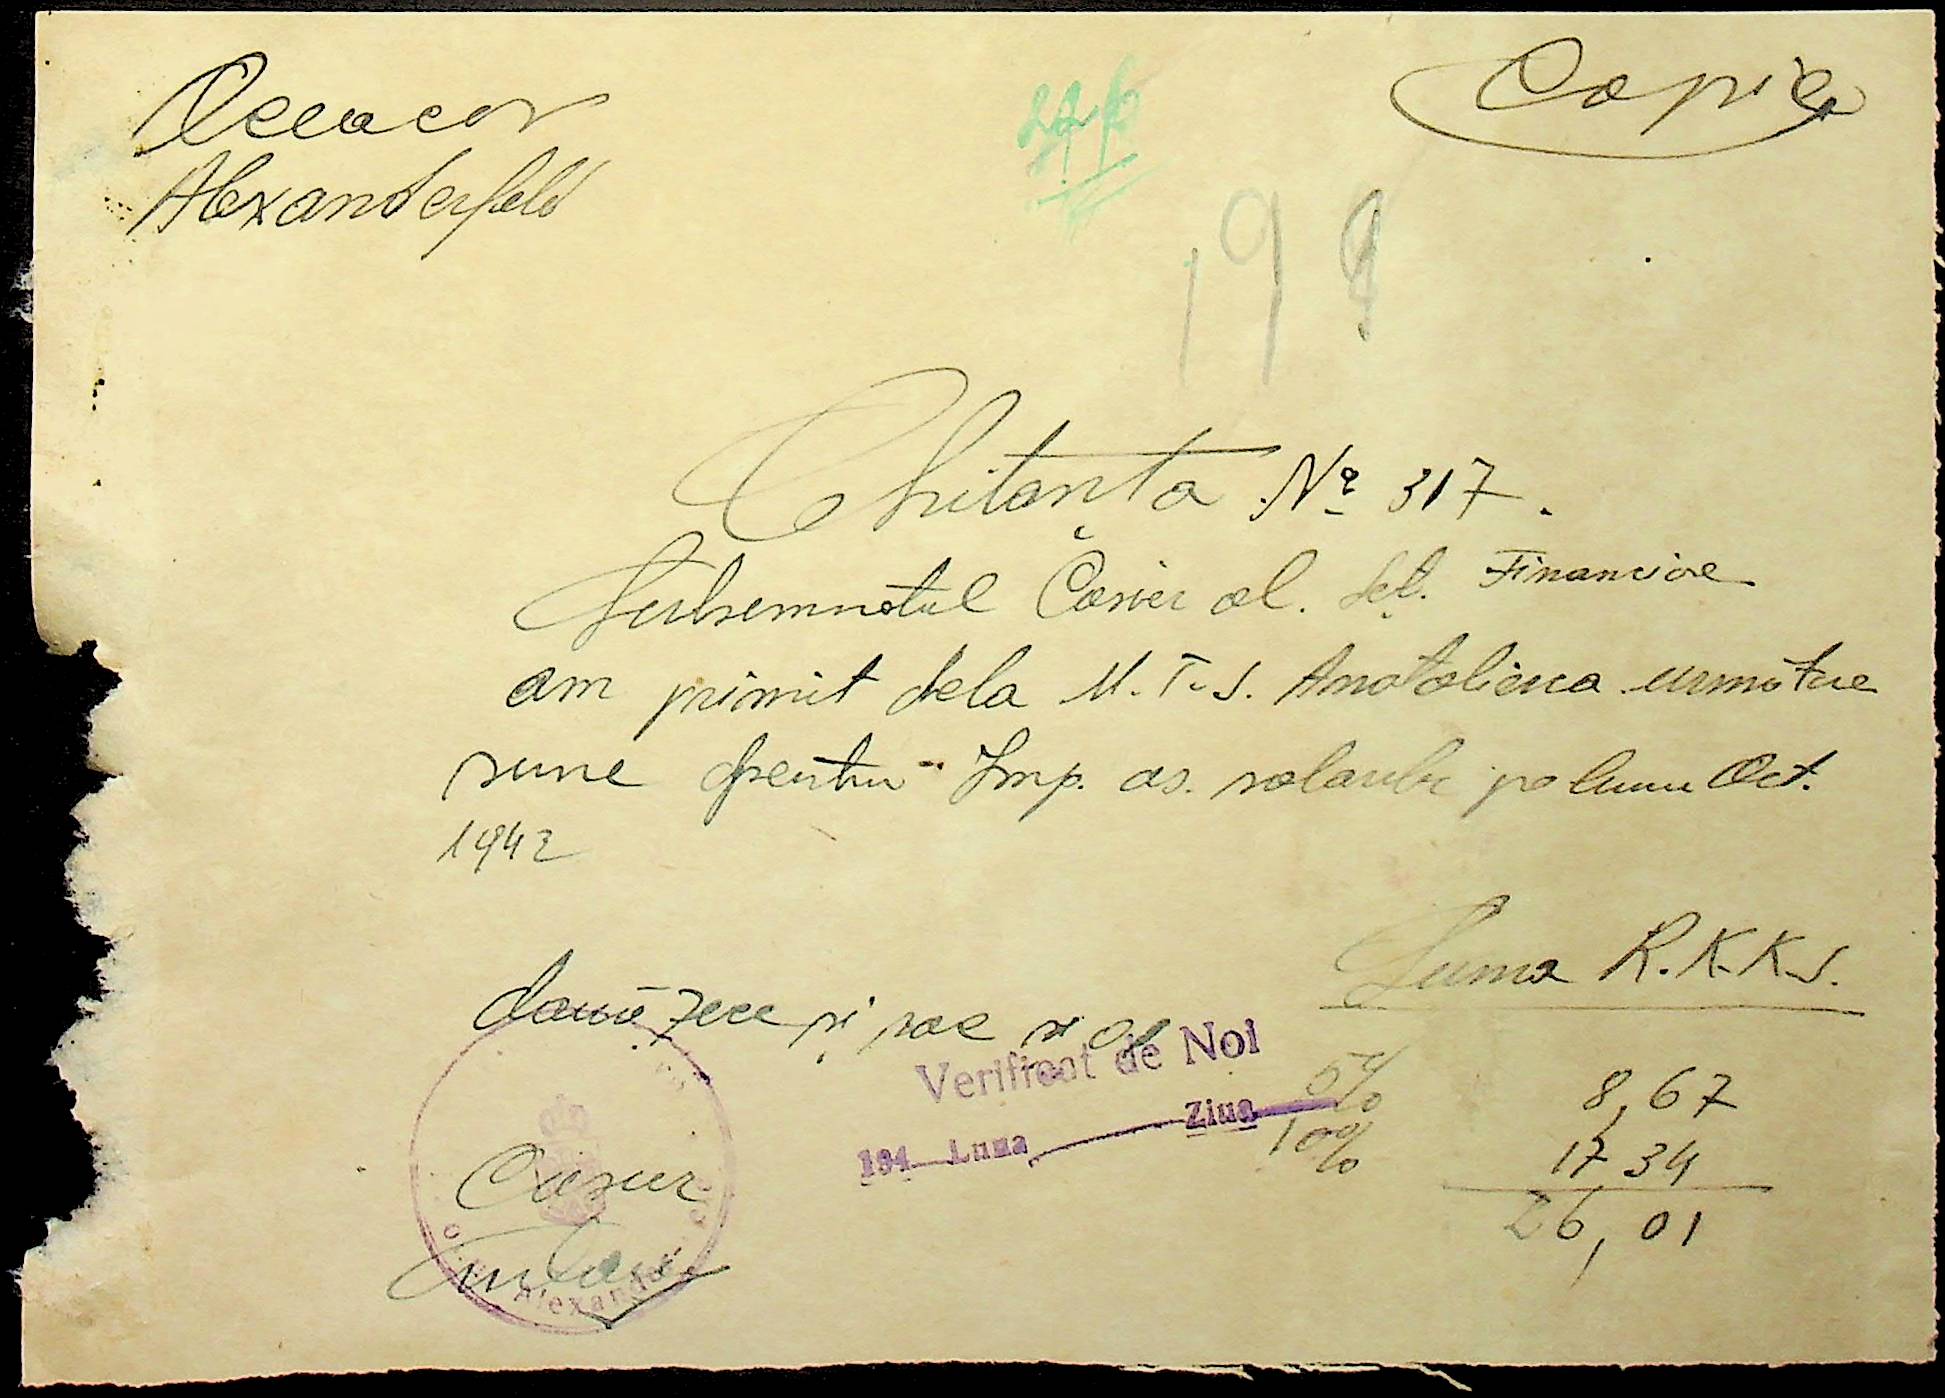 Copie
Alexanderfeld
198
Chitanta № 317.
Subsemnatul Casier al. Sct. Financiare
am primit dela M.T.S. Anatolieva urmatoare
sume pentru Imp. as. salariilor pe luna Oct.
1942
Suma R.K.K.S.
douăzece și șase și 01
Verificat de Noi
194 Luna Ziua
5% 8,67
10% 17 34
26,01
Casier
Alexander